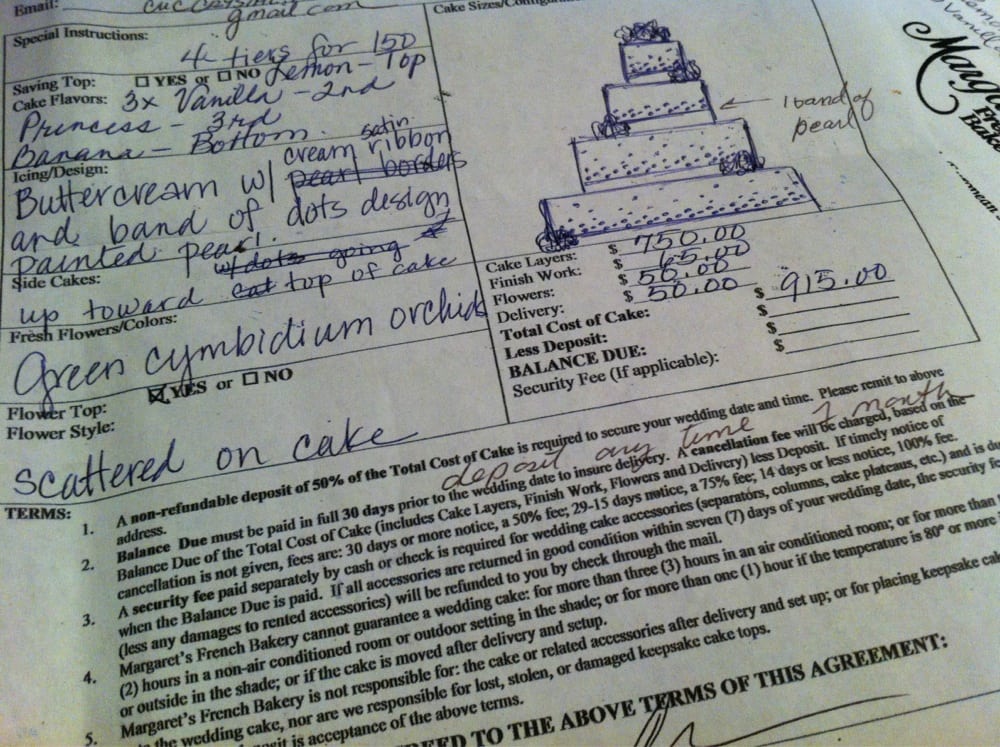 Email:
gmail.com
Special Instructions:
4 tiers for 150
Saving Top: ☐ YES or ☐ NO Lemon - Top
Cake Flavors: 3x Vanilla - 2nd
Princess - 3rd
Banana - Bottom.
Icing/Design:
satin
cream ribbon
Buttercream w/ pearl borders
and band of dots design
painted pearl.
w/ dots going
Side Cakes:
up toward cat top of cake
Fresh Flowers/Colors:
Green cymbidium orchids
Flower Top: ☒ YES or ☐ NO
Flower Style:
scattered on cake
1 band of
pearl
Cake Layers: $ 750.00
Finish Work: $ 65.00
Flowers: $ 50.00
Delivery: $ 50.00
Total Cost of Cake: $ 915.00
Less Deposit: $
BALANCE DUE: $
Security Fee (If applicable): $
TERMS:
1. A non-refundable deposit of 50% of the Total Cost of Cake is required to secure your wedding date and time. Please remit to above
address.
deposit any time 1 month
2. Balance Due must be paid in full 30 days prior to the wedding date to insure delivery. A cancellation fee will be charged, based on the
Balance Due of the Total Cost of Cake (includes Cake Layers, Finish Work, Flowers and Delivery) less Deposit. If timely notice of
cancellation is not given, fees are: 30 days or more notice, a 50% fee; 29-15 days notice, a 75% fee; 14 days or less notice, 100% fee.
3. A security fee paid separately by cash or check is required for wedding cake accessories (separators, columns, cake plateaus, etc.) and is
when the Balance Due is paid. If all accessories are returned in good condition within seven (7) days of your wedding date, the security
(less any damages to rented accessories) will be refunded to you by check through the mail.
4. Margaret's French Bakery cannot guarantee a wedding cake: for more than three (3) hours in an air conditioned room; or for more than
(2) hours in a non-air conditioned room or outdoor setting in the shade; or for more than one (1) hour if the temperature is 80° or more
or outside in the shade; or if the cake is moved after delivery and setup.
5. Margaret's French Bakery is not responsible for: the cake or related accessories after delivery and set up; or for placing keepsake
the wedding cake, nor are we responsible for lost, stolen, or damaged keepsake cake tops.
is acceptance of the above terms.
TO THE ABOVE TERMS OF THIS AGREEMENT: